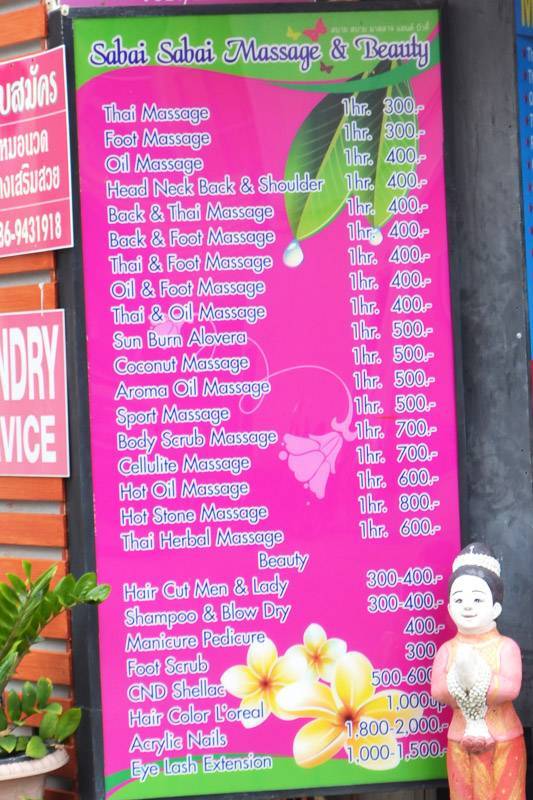 Sabai Sabai Massage & Beauty
Thai Massage 1hr. 300.-
Foot Massage 1hr. 300.-
Oil Massage 1hr. 400.-
Head Neck Back & Shoulder 1hr. 400.-
Back & Thai Massage 1hr. 400.-
Back & Foot Massage 1hr. 400.-
Thai & Foot Massage 1hr. 400.-
Oil & Foot Massage 1hr. 400.-
Thai & Oil Massage 1hr. 400.-
Sun Burn Alovera 1hr. 500.-
Coconut Massage 1hr. 500.-
Aroma Oil Massage 1hr. 500.-
Sport Massage 1hr. 500.-
Body Scrub Massage 1hr. 700.-
Cellulite Massage 1hr. 700.-
Hot Oil Massage 1hr. 600.-
Hot Stone Massage 1hr. 800.-
Thai Herbal Massage 1hr. 600.-
Beauty
Hair Cut Men & Lady 300-400.-
Shampoo & Blow Dry 300-400.-
Manicure Pedicure 400.-
Foot Scrub 300
CND Shellac 500-600
Hair Color L'oreal 1,000up
Acrylic Nails 1,800-2,000.-
Eye Lash Extension 1,000-1,500.-
บสมัคร
หมอนวด
างเสริมสวย
36-9431918
NDRY
VICE